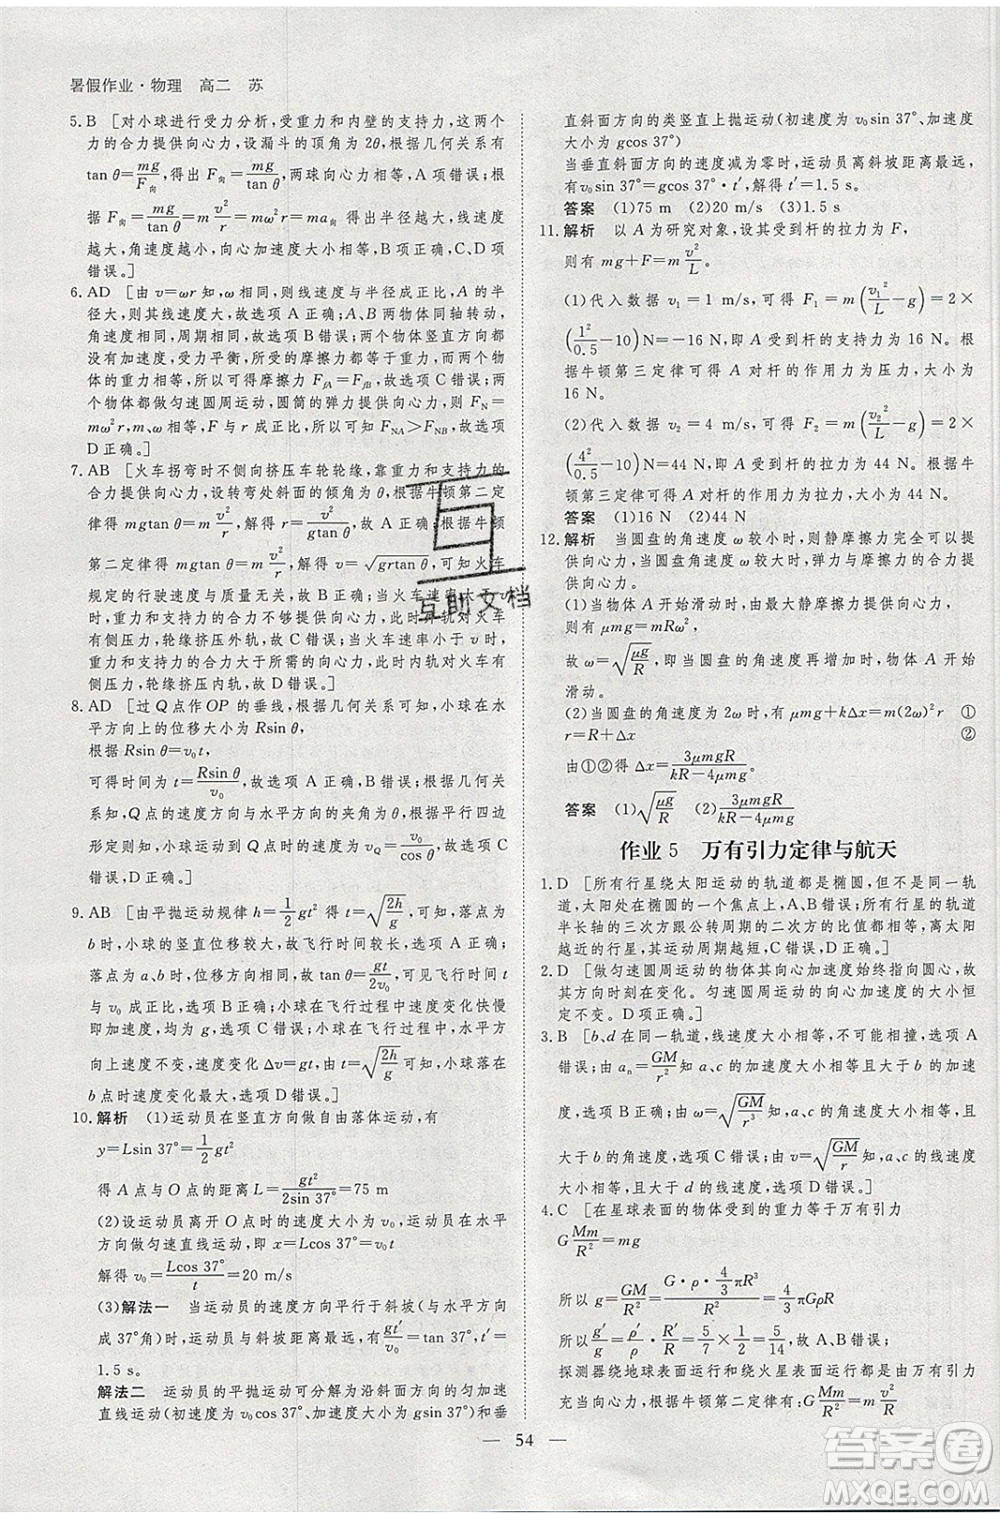 暑假作业·物理　高二　苏
5.B　[对小球进行受力分析,受重力和内壁的支持力,这两个
力的合力提供向心力,设漏斗的顶角为2θ,根据几何关系有
tan θ=mg/F向,得出F向=mg/tan θ,两球向心力相等,A项错误;根
据F向=mg/tan θ=m v²/r=ma向 得出半径越大,线速度
越大,角速度越小,向心加速度大小相等,B项正确,C、D项
错误。]
6.AD　[由v=ωr知,ω相同,则线速度与半径成正比,A的半
径大,则其线速度大,故选项A正确;A、B两物体同轴转动,角
速度相同,周期相同,故选项B错误;两个物体竖直方向都
没有加速度,受力平衡,所受的摩擦力都等于重力,而两个
物体的重力相等,所以可得摩擦力FfA=FfB,故选项C错误;
两个物体都做匀速圆周运动,圆筒的弹力提供向心力,FN=
mω²r,m、ω相等,F与r成正比,可知FNA>FNB,故选项
D正确。]
7.AB　[火车拐弯时不侧向挤压车轮轮缘,靠重力和支持力的
合力提供向心力,设转弯处斜面的倾角为θ,根据牛顿第二定
律得mgtan θ=m v²/r,解得r=v²/(gtan θ),故A正确;根据牛顿
第二定律得mgtan θ=m v²/r,解得v=√(grtan θ),可知火车
规定的行驶速度与质量无关,故B正确;当火车速率大于v
时,重力和支持力的合力不够提供向心力,此时外轨对火车有
侧压力,轮缘挤压外轨,故C错误;当火车速率小于v时,
重力和支持力的合力大于所需的向心力,此时内轨对火车有
侧压力,轮缘挤压内轨,故D错误。]
8.AD　[过Q点作OP的垂线,根据几何关系可知,小球在水
平方向上的位移大小为Rsin θ,
根据Rsin θ=v₀t,
可得时间为t=Rsin θ/v₀,故选项A正确、B错误;根据几何关
系知,Q点的速度方向与水平方向的夹角为θ,根据平行四边
形定则知,小球运动到Q点时的速度为vQ=v₀/cos θ,故选项
C错误、D正确。]
9.AB　[由平抛运动规律h=1/2 gt² 得t=√(2h/g),若小球落点为
b时,小球的竖直位移较大,故选项A正确;若两次小球的
落点为a、b,位移方向相同,故tan θ=gt/2v₀,可见飞行时间t
与v₀成正比,选项B正确;小球在飞行过程中速度变化快慢
均为g,选项C错误;小球在飞行过程中水平方向
上速度不变,速度变化Δv=gt,由t=√(2h/g)可知,小球落在
b点时速度变化最大,选项D错误。]
10.解析　(1)运动员在竖直方向做自由落体运动,有
y=Lsin 37°=1/2 gt²
得A点与O点的距离L=gt²/(2sin 37°)=75 m
(2)设运动员离开O点时的速度大小为v₀,运动员在水平
方向做匀速直线运动,即x=Lcos 37°=v₀t
解得v₀=Lcos 37°/t=20 m/s
(3)解法一　当运动员的速度方向平行于斜坡(与水平方向
成37°角)时,运动员与斜坡距离最远,有gt′/v₀=tan 37°,t′=
1.5 s。
解法二　运动员的平抛运动可分解为沿斜面方向的匀加速
直线运动(初速度为v₀cos 37°、加速度为gsin 37°)和垂
直斜面方向的类竖直上抛运动(初速度为v₀sin 37°、加速
度为gcos 37°)
当垂直斜面方向的速度减为零时,运动员离斜坡距离最远,
有v₀sin 37°=gcos 37°·t′,解得t′=1.5 s。
答案　(1)75 m　(2)20 m/s　(3)1.5 s
11.解析　以A为研究对象,设其受到杆的拉力为F,
则有mg+F=m v²/L
(1)代入数据v₁=1 m/s,可得F₁=m(v₁²/L−g)=2×
(1²/0.5−10)N=−16 N,即A受到杆的支持力为16 N。
根据牛顿第三定律可得A对杆的作用力为压力,大小为
16 N。
(2)代入数据v₂=4 m/s,可得F₂=m(v₂²/L−g)=2×
(4²/0.5−10)N=44 N,即A受到杆的拉力为44 N。根据牛
顿第三定律可得A对杆的作用力为拉力,大小为44 N。
答案　(1)16 N　(2)44 N
12.解析　当圆盘的角速度ω较小时,则静摩擦力完全可以提
供向心力;当圆盘角速度ω较大时,弹力与摩擦力的合力提
供向心力。
(1)当物体A开始滑动时,由最大静摩擦力提供向心力,
则有:μmg=mRω²,
故ω=√(μg/R),即当圆盘的角速度为√(μg/R)时,物体A开始
滑动。
(2)当圆盘的角速度为2ω时,有μmg+kΔx=m(2ω)²r　①
r=R+Δx　②
由①②得Δx=3μmgR/(kR−4μmg)。
答案　(1)√(μg/R)　(2)3μmgR/(kR−4μmg)
作业5　万有引力定律与航天
1.D　[所有行星绕太阳运动的轨道都是椭圆,但不是同一轨
道,太阳处在椭圆的一个焦点上,A、B错误;所有行星轨道
半长轴的三次方跟公转周期的二次方的比值都相等,离太阳
越近的行星,其运动周期越短,C错误,D正确。]
2.D　[做匀速圆周运动的物体其向心加速度始终指向圆心,故
其方向时刻发生改变。匀速圆周运动的向心加速度大小恒
定不变,故D正确。]
3.B　[b、d在同一轨道,线速度大小相等,不可能相撞,选项A
错误;由an=GM/r²知a、c的加速度大小相等,且大于b的加速
度,选项B正确;由ω=√(GM/r³)知,a、c的角速度大小相等,且
大于b的角速度,选项C错误;由v=√(GM/r)知,a、c的线速度
大小相等,且大于d的线速度,选项D错误。]
4.C　[在星球表面的物体受到的重力等于万有引力
G Mm/R²=mg
所以g=GM/R²=(G·ρ·4/3 πR³)/R²=4/3 πGρR
所以g′/g=ρ′/ρ·R′/R=5/7×1/2=5/14,故A、B错误;
探测器绕地球表面运行和绕火星表面运行都是万有引力
充当向心力,根据牛顿第二定律有:G Mm/R²=m v²/R
— 54 —
互助文档
答案卷
MXQE.COM